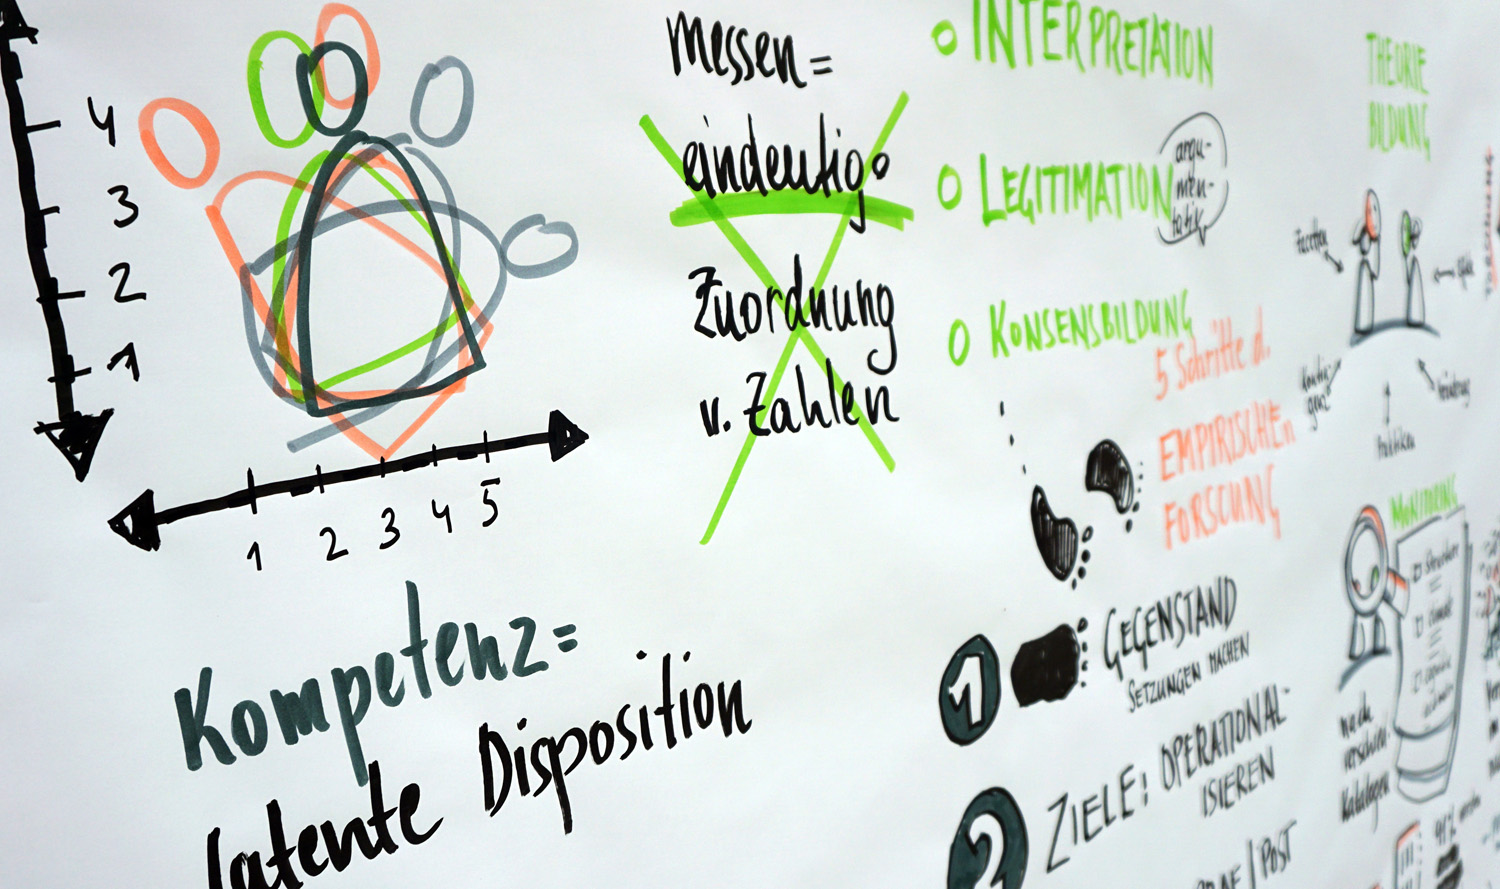 4
3
2
1
1 2 3 4 5
Kompetenz=
latente Disposition
messen=
eindeutige
Zuordnung
v. Zahlen
INTERPRETATION
LEGITIMATION
argu-
men-
tativ
KONSENSBILDUNG
5 Schritte d.
EMPIRISCHEn
FORSCUNG
1
GEGENSTAND
SETZUNGEN MACHEN
2
ZIELE: OPERATIONAL-
ISIEREN
/POST
THEORIE
BILDUNG
Facetten
MONITORING
nach
verschien.
Katalogen